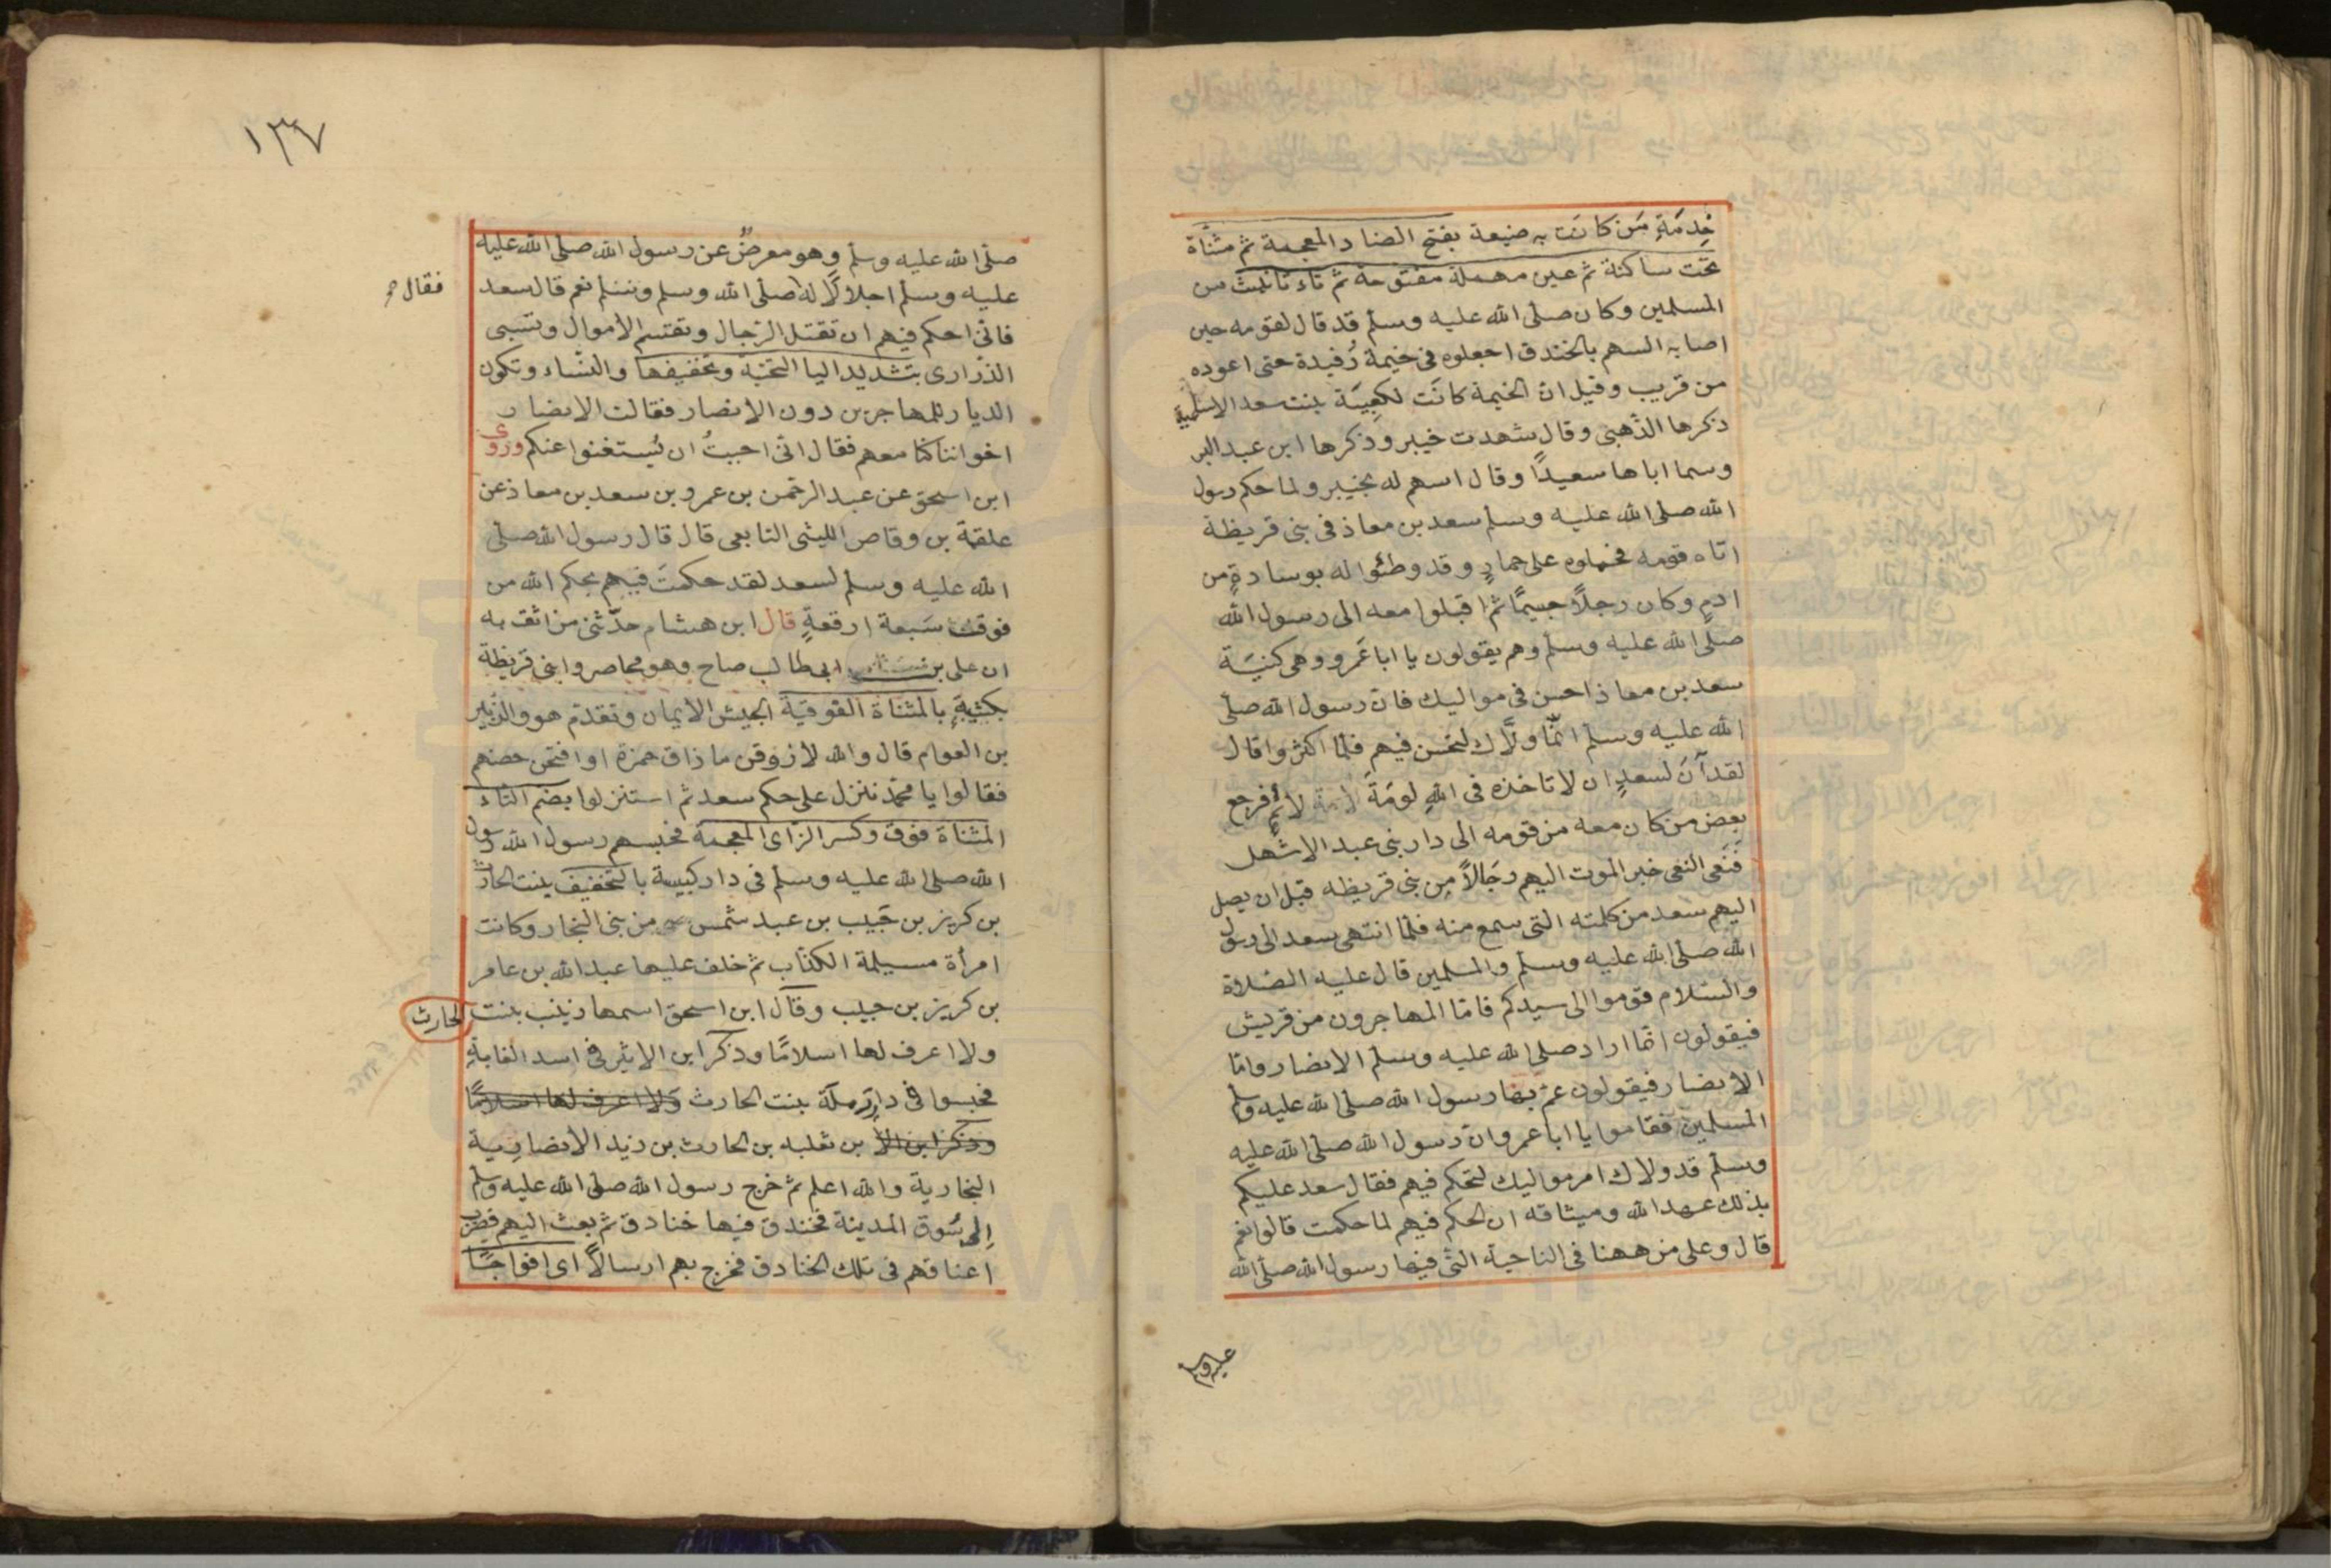 خِدمَةِ مَن كانت به ضيعة بفتح الضاد المعجمة ثم مثناة
تحت ساكنة ثم عين مهملة مفتوحة ثم تاء تانيث من
المسلمين وكان صلى الله عليه وسلم قد قال لقومه حين
اصابه السهم بالخندق اجعلوه فى خيمة رُفيدة حتى اعوده
من قريب وقيل ان الخيمة كانَت لكعِيبَة بنت سعد الاسلمية
ذكرها الذهبى وقال شهدت خيبر وذكرها ابن عبد البر
وسما اباها سعيدًا وقال اسهم له بخيبر ولما حكم رسول
الله صلى الله عليه وسلم سعد بن معاذ فى بنى قريظة
اتاه قومه فحملوه على حمارٍ وقد وطئوا له بوسادةٍ من
ادمٍ وكان رجلًا جسيمًا ثم اقبلوا معه الى رسول الله
صلى الله عليه وسلم وهم يقولون يا ابا عَمرو وهى كنيَة
سعد بن معاذ احسن فى مواليك فان رسول الله صلى
الله عليه وسلم انّما ولَّاك لتحسن فيهم فلما اكثروا قال
لقد آنَ لسعدٍ ان لا تاخذه فى اللهِ لومَةَ لائمٍ فرجع
بعض من كان معه من قومه الى دار بنى عبد الاشهل
فَنَعى النعى خبر الموت اليهم رجَالًا مِن بنى قريظه قبل ان يصل
اليهم سعد من كلمته التى سمع منه فلما انتهى سعد الى رسول
الله صلى الله عليه وسلم والمسلمين قال عليه الصلاة
والسلام قوموا الى سيدكم فامّا المهاجرون من قريش
فيقولون انما اراد صلى الله عليه وسلم الانصار وامّا
الانصار فيقولون عمّ بها رسول الله صلى الله عليه وسلم
المسلمين فقاموا يا ابا عمرو ان رسول الله صلى الله عليه
وسلم قد ولاك امر مواليك لتحكم فيهم فقال سعد عليكم
بذلك عهد الله وميثاقه ان الحكم فيهم لما حكمت قالوا نعم
قال وعلى من ههنا فى الناحية التى فيها رسول الله صلى الله
عليه وسلم
١٣٧
صلى الله عليه وسلم وهو معرضٌ عن رسول الله صلى الله عليه
عليه وسلم اجلالًا له صلى الله وسلم وسلم نعم قال سعد
فقال
فانى احكم فيهم ان تقتل الرجال وتقتسم الأموال وتسبى
الذرارى بتشديد اليا التحتية وتخفيفها والنساء وتكون
الديار للمهاجرين دون الانصار فقالت الانصار
اخواننا كنا معهم فقال انى احببتُ ان يُستغنوا عنكم وروى
ابن اسحق عن عبد الرحمن بن عمرو بن سعد بن معاذ عن
علقمة بن وقاص الليثى التابعى قال قال رسول الله صلى
الله عليه وسلم لسعد لقد حكمتَ فيهم بحكم الله من
فوقِ سَبعة ارقعةٍ قال ابن هشام حدّثنى من اثق به
ان على بن ابى طالب صاح وهو محاصروا بنى قريظة
بكتيبةِ بالمثناة الفوقية الجيش الايمان وتقدم هو والزبير
بن العوام قال والله لازوقن ما ذاق حمزة او افتحن حصنهم
فقالوا يا محمّد ننزل على حكم سعد ثم استنزلوا بضم التاء
المثناة فوق وكسر الزاى المعجمة فحبسهم رسول الله رسول
الله صلى الله عليه وسلم فى دار كبيسة بالتخفيف بنت الحارث
بن كريز بن حَبيب بن عبد شمس من بنى النجار وكانت
امرأة مسيلمة الكذّاب ثم خلف عليها عبد الله بن عامر
بن كريز بن حبيب وقال ابن اسحق اسمها زينب بنت
الحارث
ولا اعرف لها اسلامًا وذكر ابن الاثير فى اسد الغابةِ
فحبسوا فى دار رملة بنت الحارث ولا اعرف لها اسلامًا
وذكر ابن الا بن ثعلبه بن الحارث بن زيد الأنصارِية
النجارية والله اعلم ثم خرج رسول الله صلى الله عليه وسلم
إلى سُوق المدينة فخندق فيها خنادق ثم بعث اليهم فضرب
اعناقهم فى تلك الخنادق فخرج بهم ارسالًا اى افواجًا